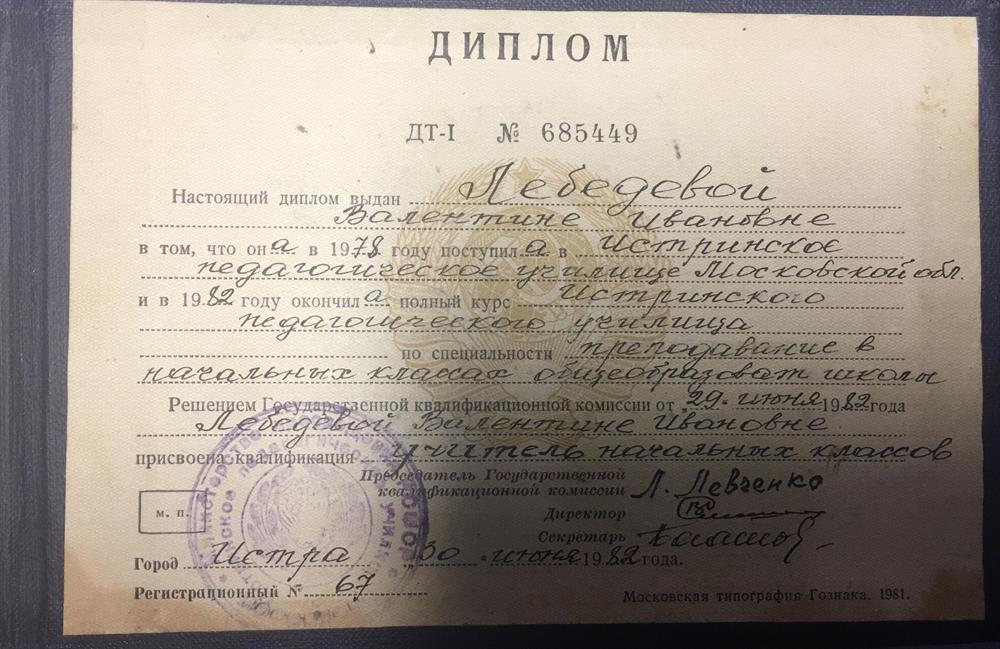 ДИПЛОМ
ДТ-I № 685449
Настоящий диплом выдан Лебедевой
Валентине Ивановне
в том, что она в 1978 году поступила в Истринское
педагогическое училище Московской обл.
и в 1982 году окончила полный курс Истринского
педагогического училища
по специальности преподавание в
начальных классах общеобразоват школы
Решением Государственной квалификационной комиссии от "29" июня 1982 года
Лебедевой Валентине Ивановне
присвоена квалификация учитель начальных классов
Председатель Государственной
квалификационной комиссии Л. Левченко
м. п.
Директор
Секретарь
Город Истра "30" июня 1982 года.
Регистрационный № 67
Московская типография Гознака. 1981.